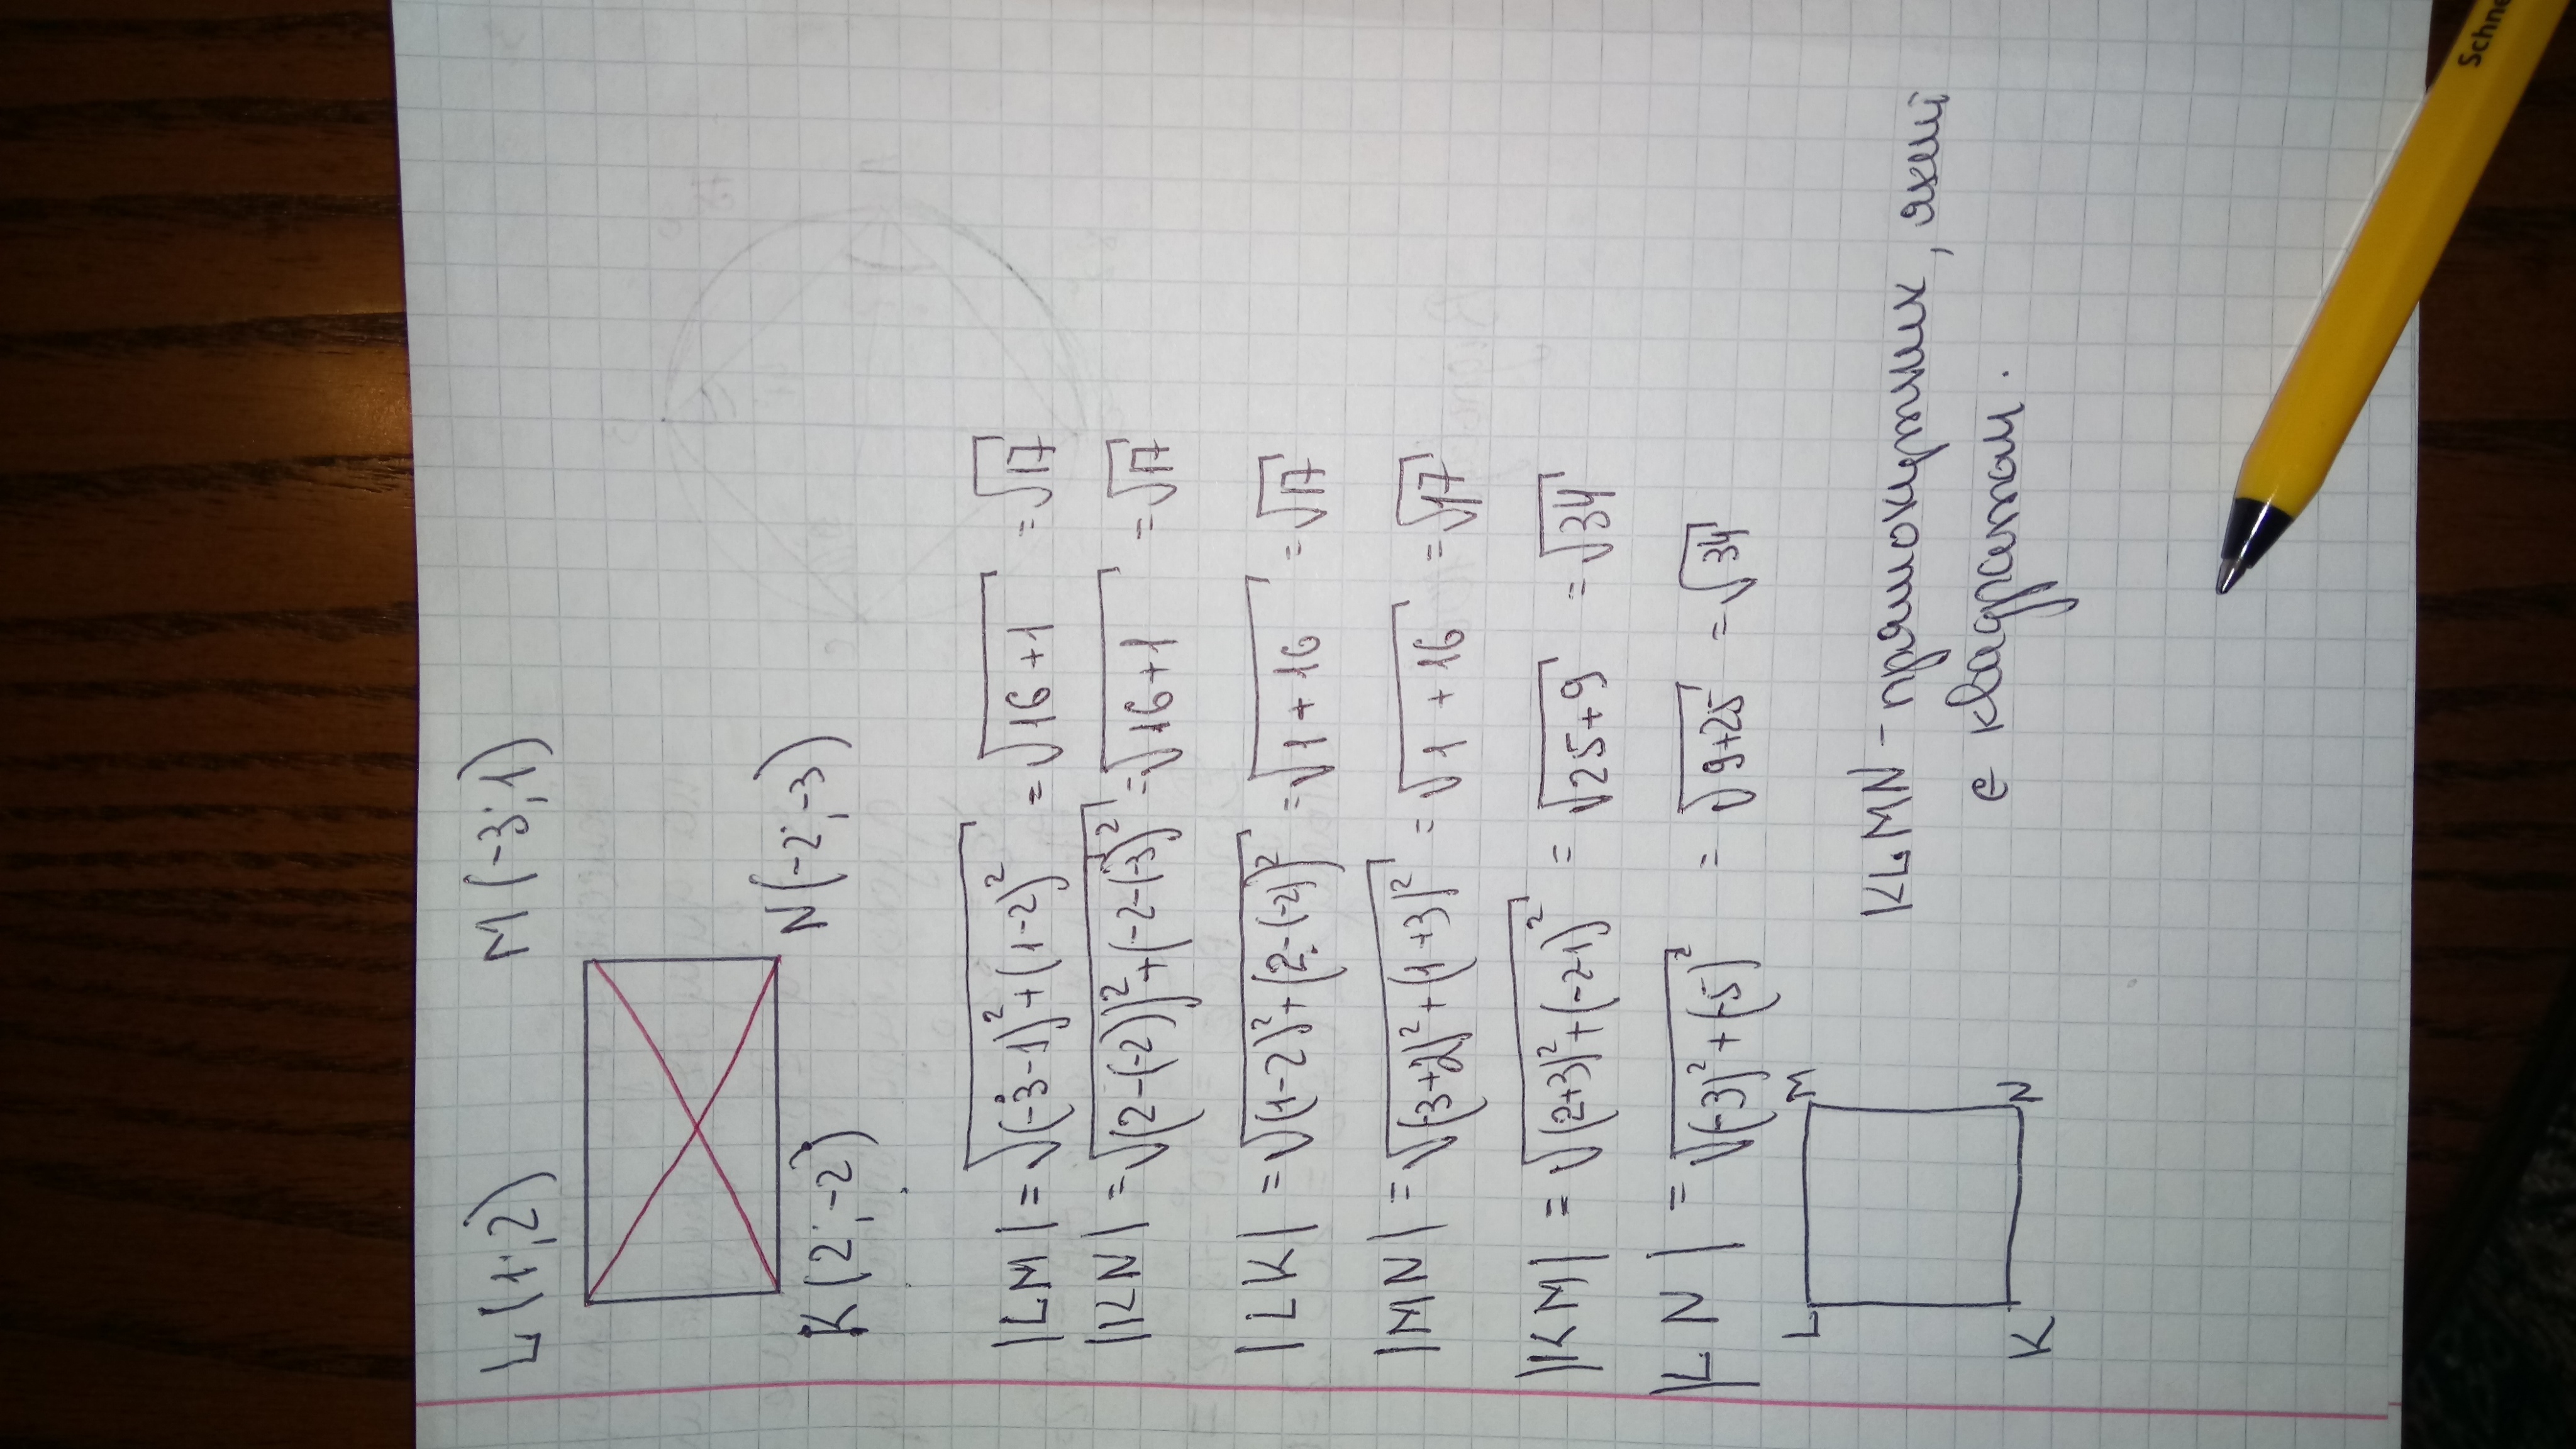 L(1;2) M(-3;1)
K(2;-2) N(-2;-3)
|LM| = √(-3-1)² + (1-2)² = √16+1 = √17
|KN| = √(2-(-2))² + (-2-(-3))² = √16+1 = √17
|LK| = √(1-2)² + (2-(-2))² = √1+16 = √17
|MN| = √(-3+2)² + (1+3)² = √1+16 = √17
|KM| = √(2+3)² + (-2-1)² = √25+9 = √34
|LN| = √(-3)² + (-5)² = √9+25 = √34
L M
K N
KLMN - прямокутник, який
є квадратом.
Schne